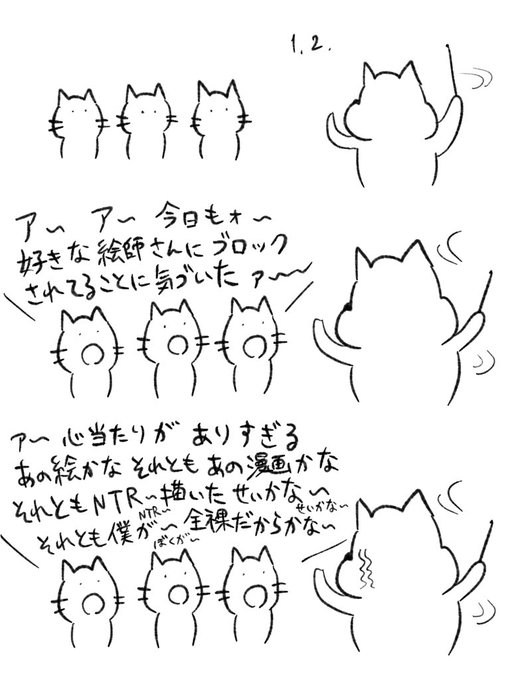 1.2.
ア〜 ア〜 今日もォ〜
好きな絵師さんにブロック
されてることに気づいたァ〜
ァ〜 心当たりが ありすぎる
あの絵かな それとも あの漫画かな
それともNTR〜描いた せいかな〜
NTR〜
せいかな〜
それとも僕が〜 全裸だからかな〜
ぼくが〜